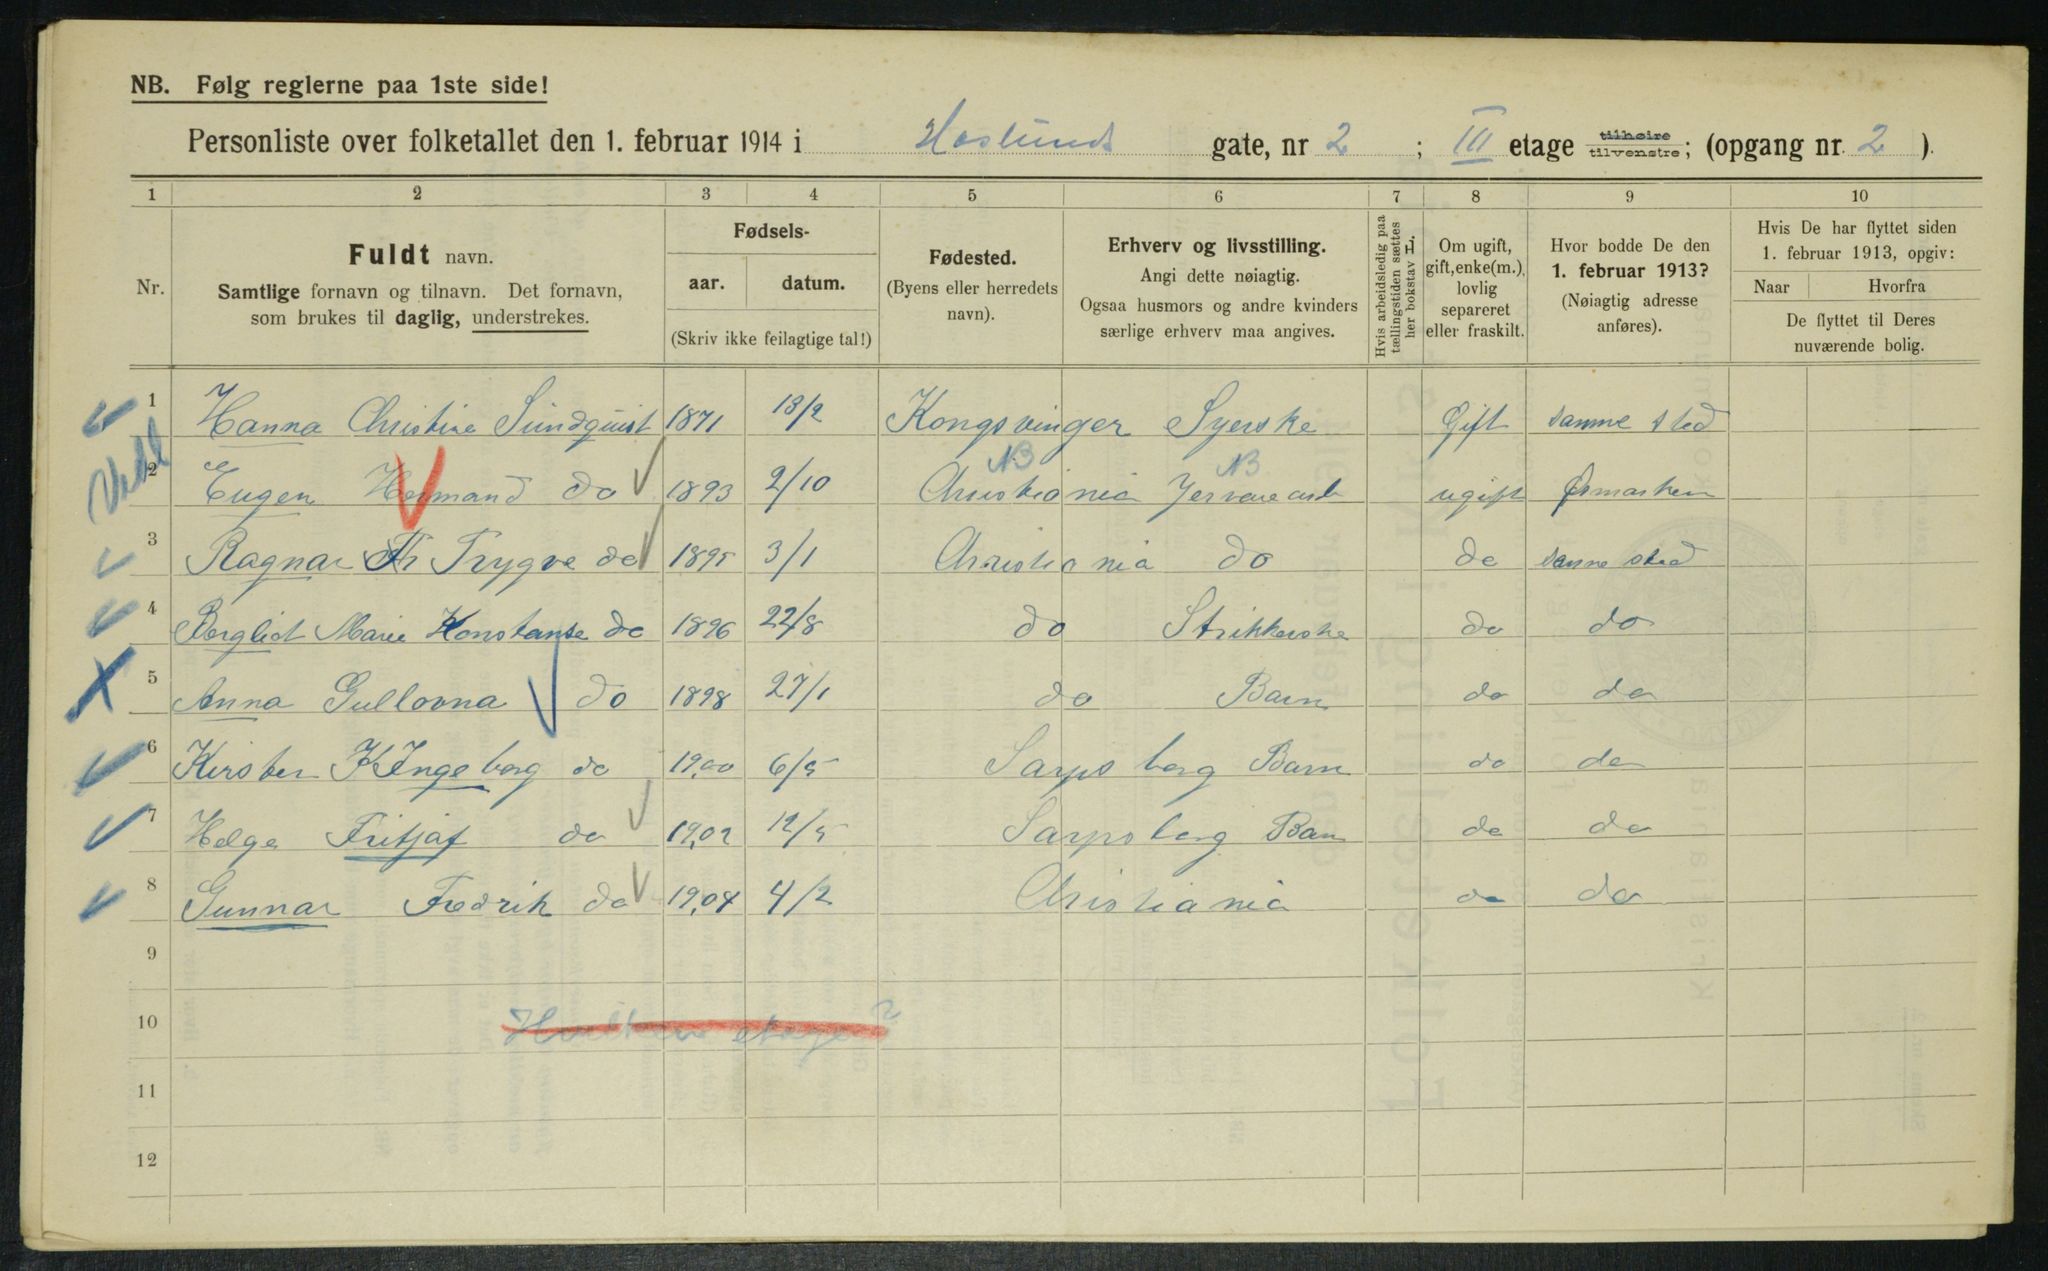 NB. Følg reglerne paa 1ste side!
Personliste over folketallet den 1. februar 1914 i Haslunds gate, nr 2 ; III etage tilhøire tilvenstre; (opgang nr. 2 ).
1 2 3 4 5 6 7 8 9 10
Nr.
Fuldt navn.
Samtlige fornavn og tilnavn. Det fornavn,
som brukes til daglig, understrekes.
Fødsels-
aar. datum.
(Skriv ikke feilagtige tal!)
Fødested.
(Byens eller herredets
navn).
Erhverv og livsstilling.
Angi dette nøiagtig.
Ogsaa husmors og andre kvinders
særlige erhverv maa angives.
Hvis arbeidsledig paa
tællingstiden sættes
her bokstav L
Om ugift,
gift, enke(m.),
lovlig
separeret
eller fraskilt.
Hvor bodde De den
1. februar 1913?
(Nøiagtig adresse
anføres).
Hvis De har flyttet siden
1. februar 1913, opgiv:
Naar Hvorfra
De flyttet til Deres
nuværende bolig.
1 Hanna Christine Sundquist 1871 13/2 Kongsvinger Syerske Gift samme sted
NB NB
2 Eugen Hermand do 1893 2/10 Christiania Jernvarearb ugift Ørmarken
3 Ragnar Th Trygve do 1895 3/1 Christiania do do samme sted
4 Bergliot Marie Konstanse do 1896 22/8 do Strikkerske do do
5 Anna Gullovna do 1898 27/1 do Barn do do
6 Kirsten K Ingeborg do 1900 6/5 Sarpsborg Barn do do
7 Helge Fritjof do 1902 12/5 Sarpsborg Barn do do
8 Gunnar Fredrik do 1904 4/2 Christiania do do
9
10
11
12